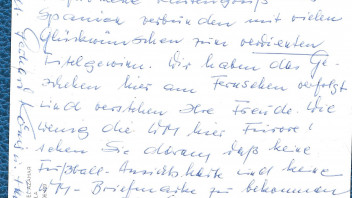 Spannen verbunden mit vielen
Glückwünschen zum verdienten
Titelgewinn. Wir haben das Ge-
schehen hier am Fernsehen verfolgt
und verstehen Ihre Freude. Wie
wenig die WM hier Furore!
sehen Sie daran, daß keine
Fußball-Ansichtskarte und keine
WM-Briefmarke zu bekommen